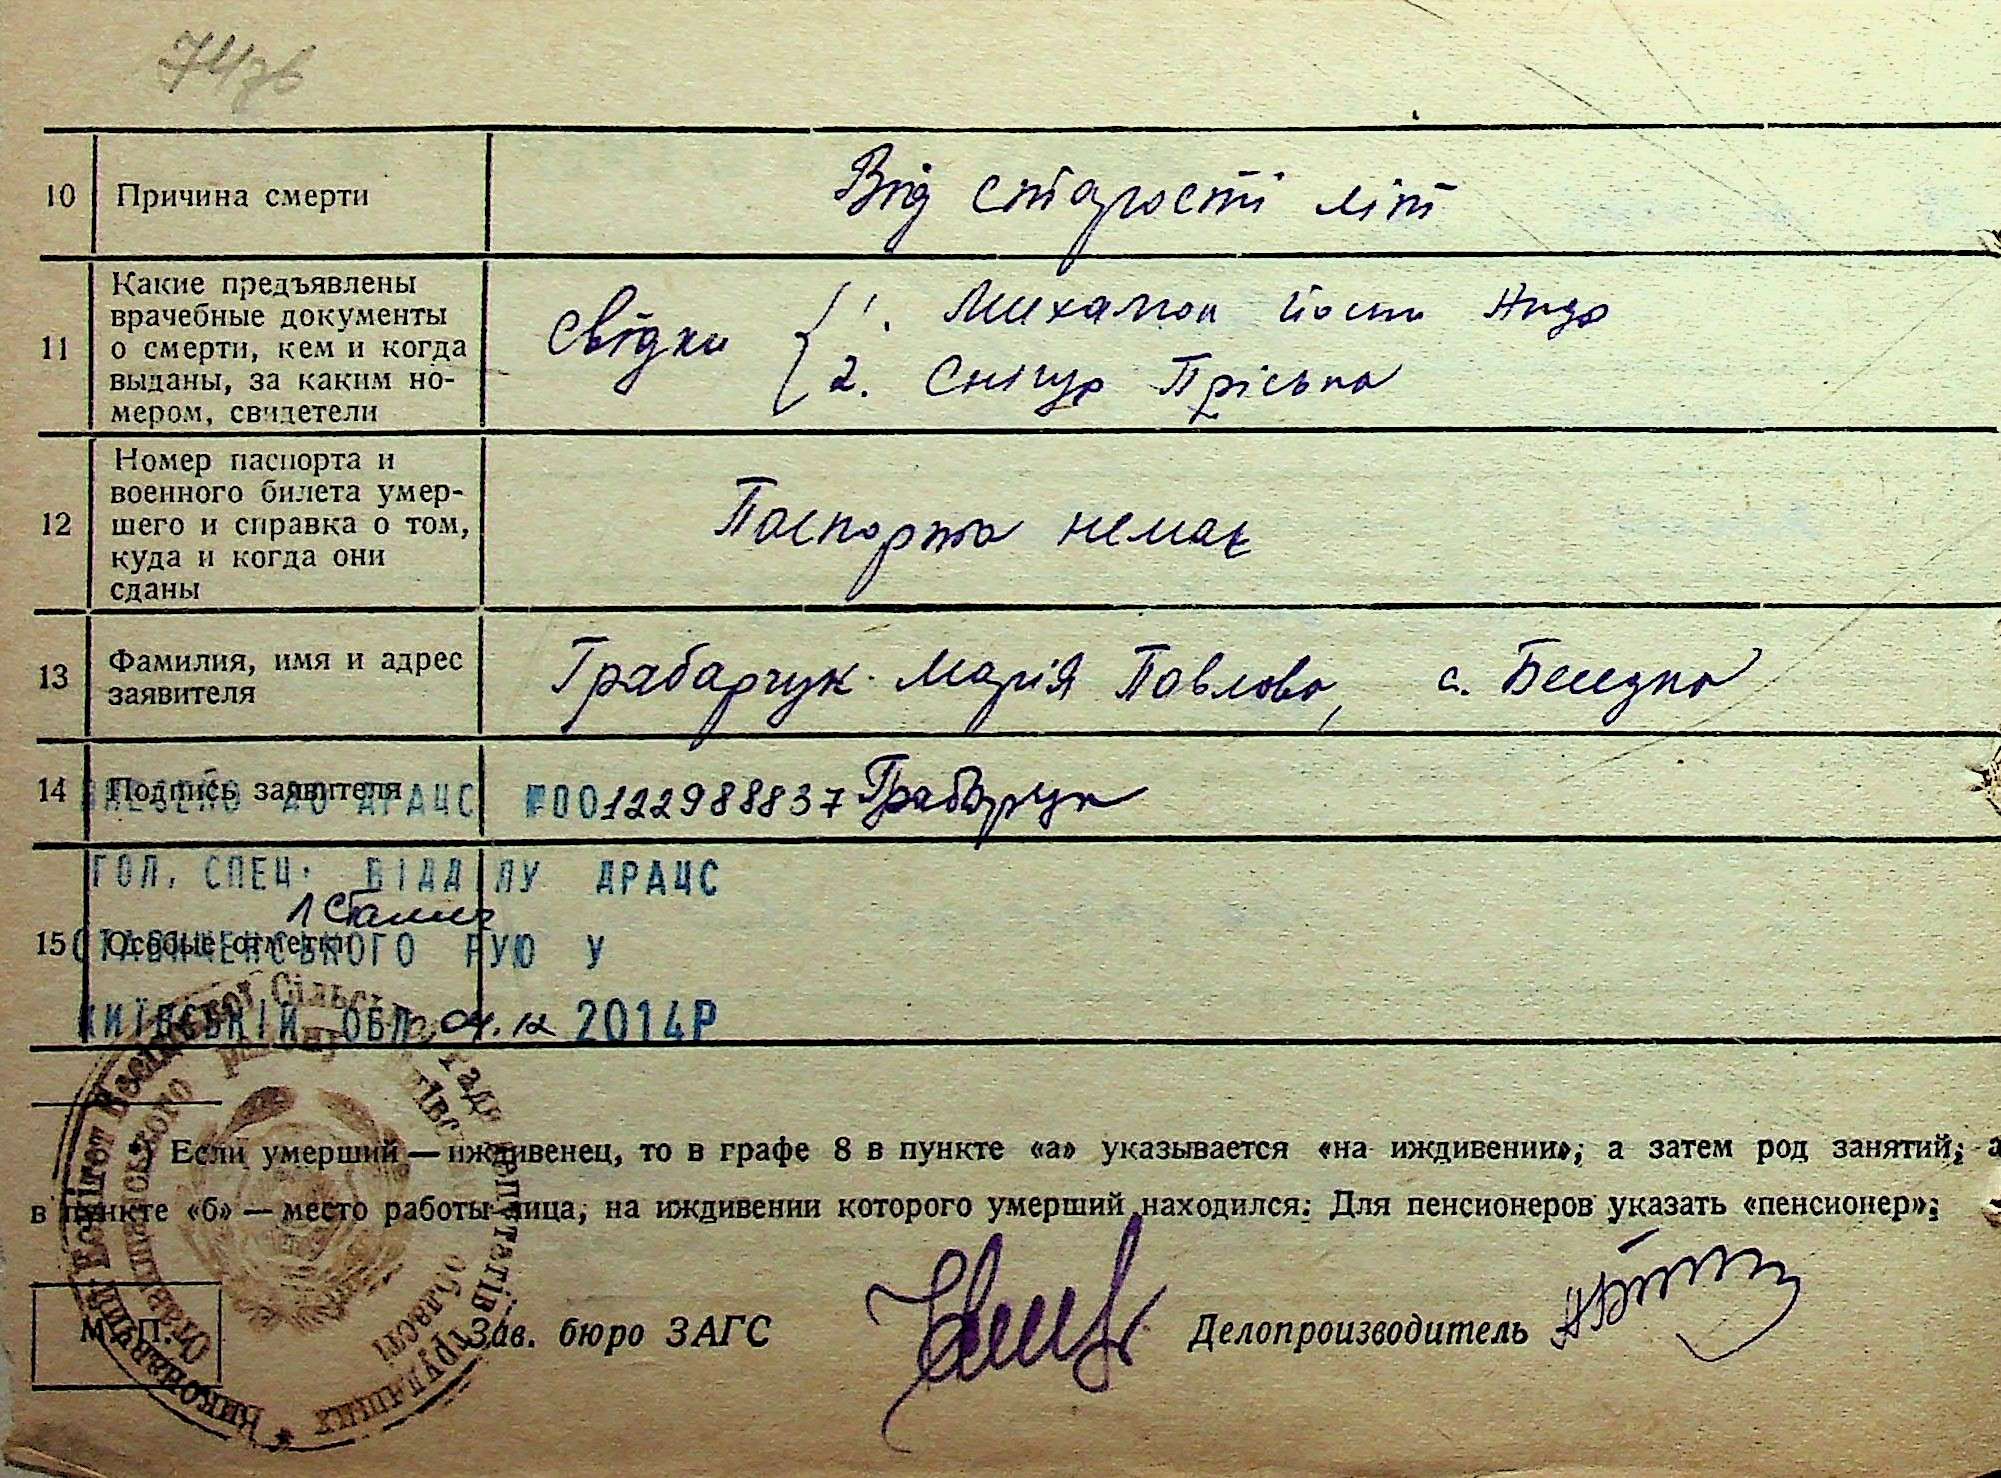 10 Причина смерти Від старості літ
11 Какие предъявлены
врачебные документы
о смерти, кем и когда
выданы, за каким но-
мером, свидетели
Свідки { 1.
2. Снігур Пріська
12 Номер паспорта и
военного билета умер-
шего и справка о том,
куда и когда они
сданы
Паспорта немає
13 Фамилия, имя и адрес
заявителя
Грабарчук Марія Павлова, с. Беседка
14 Подпись заявителя Грабарчук
ВНЕСЕНО ДО ДРАЦС №00122988837
ГОЛ. СПЕЦ. ВІДДІЛУ ДРАЦС
15 Особые отметки
СТАВИЩЕНСЬКОГО РУЮ У
КИЇВСЬКІЙ ОБЛ. 04.12 2014Р
Виконавчий Комітет Бесідської Сільської Ради депутатів трудящих
Ставищанського району Київської області
*) Если умерший — иждивенец, то в графе 8 в пункте «а» указывается «на иждивении»; а затем род занятий; а
в пункте «б» — место работы лица, на иждивении которого умерший находился: Для пенсионеров указать «пенсионер»;
М. П. Зав. бюро ЗАГС Делопроизводитель